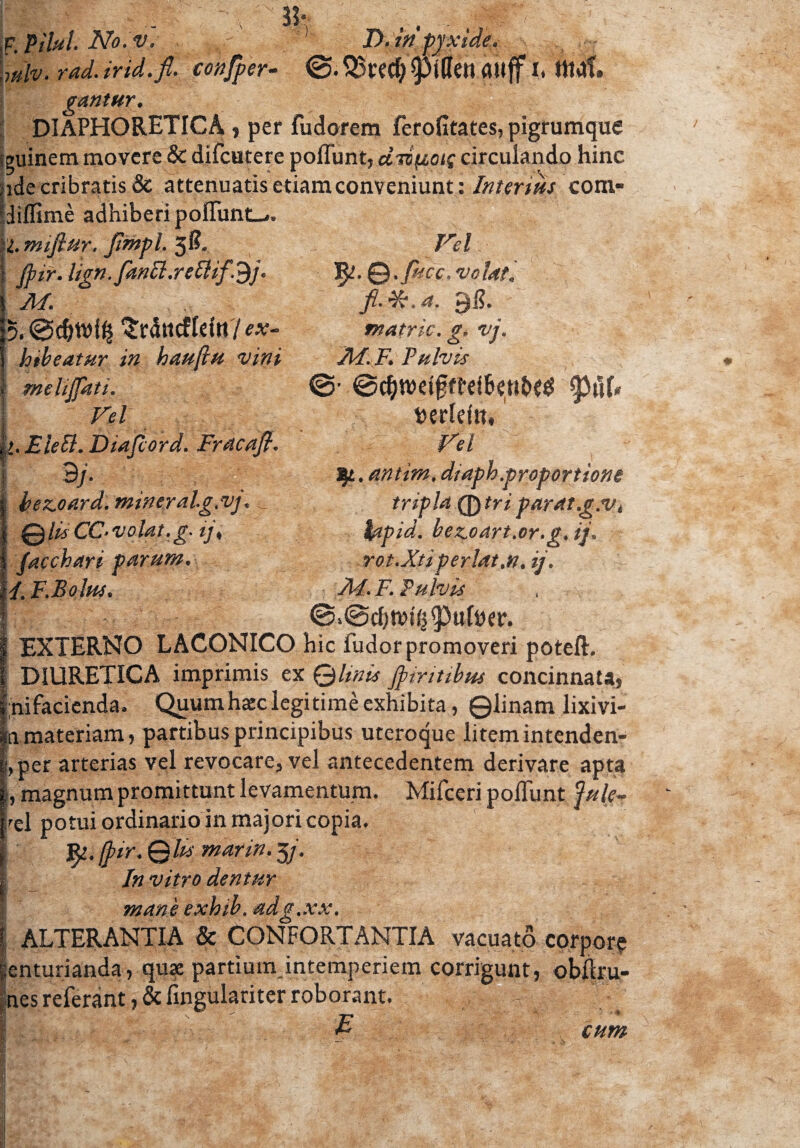 33.
F. Pilul. No. v.
pulv. rad. irid. fl. consper-
gantur.
D. in pyxide.
S. Brech Pillen auff 1. mal.
DIAPHORETICA, per sudorem serositates, pigrumque
guinem movere & discutere possunt, circulando hinc
ide cribratis & attenuatis etiam conveniunt: Interius com-
dissimè adhiberi possunt.
mistur. simpl. ʒß.
spir. lign. sanct. rectif. ℈j.
M.
S. Schwiß Träncklein / ex-
hibeatur in haustu vini
melissati.
Vel
Elect. Diascord. Fracast.
℈j.
bezoard. mineral. g. vj.
🜔lis CC. volat. g. ij.
sacchari parum.
M. F. Bolus.
Vel
℞. 🜔. succ. volat.
fl. ✶. a. ℈ß.
matric. g. vj.
M. F. Pulvis
S. Schweißtreibendes Pül-
verlein.
Vel
℞. antim. diaph. proportione
tripla 🜕tri parat. g. v.
lapid. bezoart. or. g. ij.
rot. Xti perlat. n. ij.
M. F. Pulvis
S. Schwiß Pulver.
EXTERNO LACONICO hic sudor promoveri potest.
DIURETICA imprimis ex 🜔linis spiritibus concinnata,
nifacienda. Quum hæc legitimè exhibita, 🜔linam lixivi-
materiam, partibus principibus uteroque litem intenden-
, per arterias vel revocare, vel antecedentem derivare apta
, magnum promittunt levamentum. Misceri possunt Jule-
vel potui ordinario in majori copia.
℞. spir. 🜔lis marin. ʒj.
In vitro dentur
manè exhib. ad g. xx.
ALTERANTIA & CONFORTANTIA vacuatô corpore
centurianda, quæ partium intemperiem corrigunt, obstru-
nes referant, & singulariter roborant.
E
cum